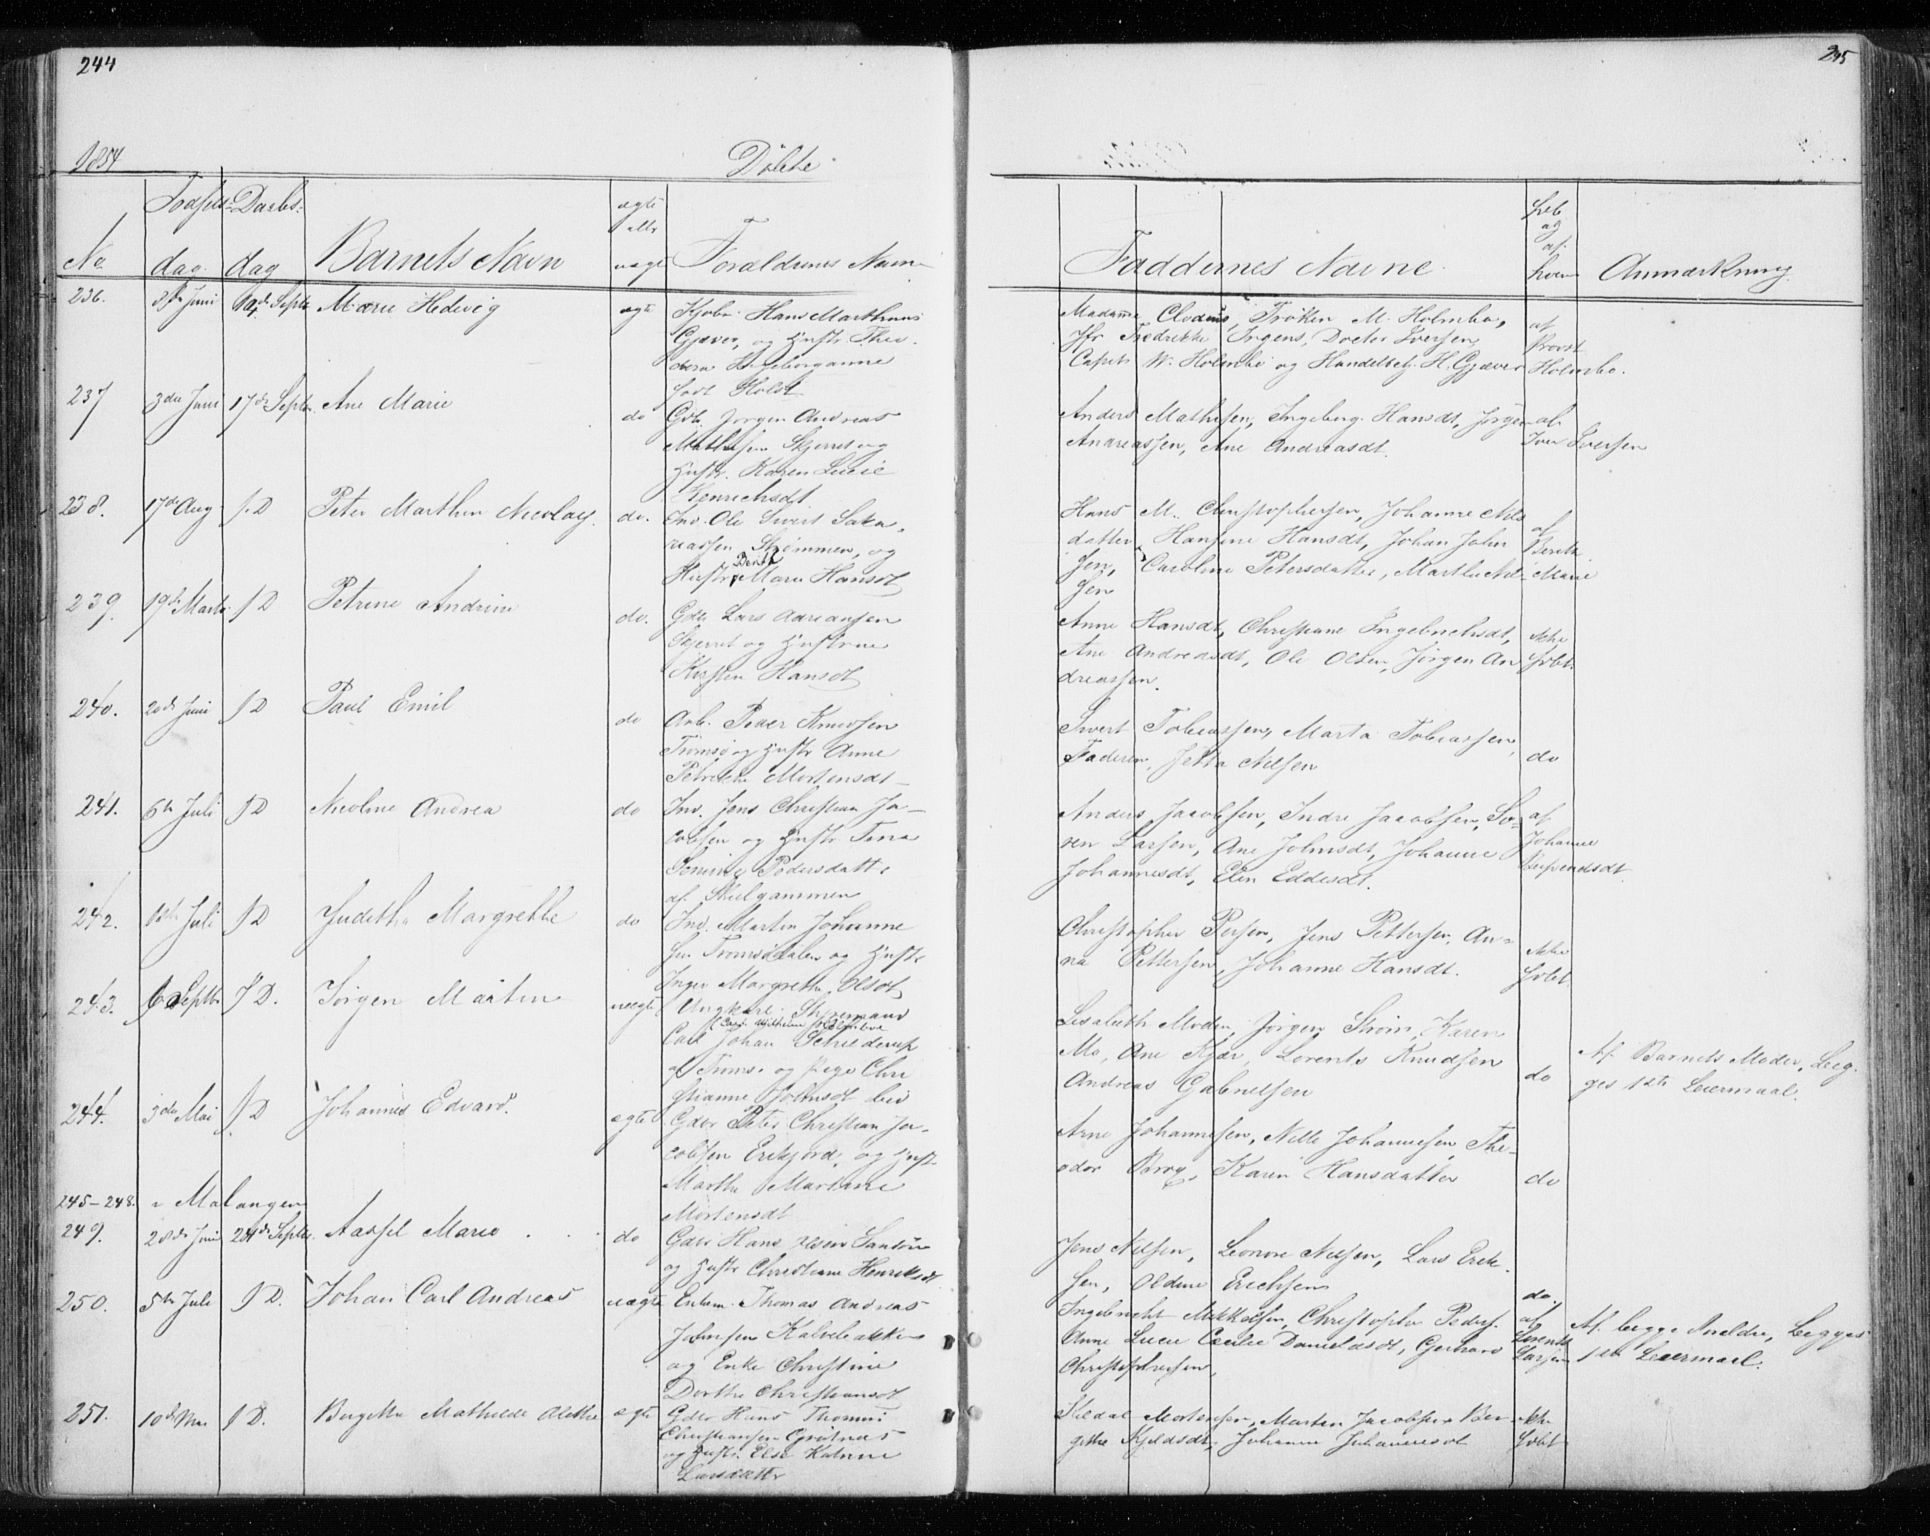 244
1854
Døbte
No
Fødsels- dag
Daabs- dag
Barnets Navn
ægte eller uægte
Forældrenes Navn
236.
Juni
Septr
Marie Hedevig
ægte
Kjøbm. Hans Marthinus
Gjæver, og Hustr Theo-
dora Ingeborganne
født Holst
237
3die Juni
17de Septr.
Ane Marie
do
Gdb. Jørgen Andreas
Mathisen Skjerret og
Hustr. Karen Lucie
Henrichsdt
238.
17de Aug
S. D
Peter Marthin Nicolay.
do.
Ind. Ole Sivert Saka-
riassen Strømmen, og
Hustr. Berith Marie Hansdt
239.
19de Marts
S D
Petrine Andrine
do.
Gdb. Lars Adriansen
Skjerret og Hustrue
Kirsten Hansdt
240.
20de Juni
S D
Paul Emil
do
Arb. Peder Knudsen
Tromsø og Hustr Anne
Petrikke Mortensdt
241.
6te Juli
S D
Nicoline Andrea
do
Ind. Jens Christian Ja-
cobsen og Hustr Tina
Pedersdatt.
af Skulgammen
242.
Juli
S D
Judith Margrethe
do
Ind. Martin Johanne-
sen Tromsdalen og Hustr
Inger Margrethe Olsdt
243.
Septbr
S D.
Jørgen Martin
uægte
Ungkarl Styrmand
Carl Johan Schilderup
af Tromsø og Pige Chri
stianne Johnsdt
244.
3die Mai
S D
Johannes Edvard.
ægte
Gdbr Peter Christian Ja-
cobsen Ersfjord, og Hust
Marthe Mariane
Mortensdt
245-248. i Malangen
249.
28de Juni
24de Septbr.
Aassel Marie
do
Gdbr Hans
og Hustr Christiane Henriksdt
250.
5te Juli
S D.
Johan Carl Andreas
uægte
Enkem. Thomas Andreas
Johnsen Kalvebakken
og Enke Christine
Dorthe Christiansdt
251.
10de
S D.
Bergitte Mathilde Alethe
ægte
Gdbr Hans Thomas
Christiansen Grøtnes
og Hustr. Else Katrine
Larsdatter
245
Faddernes Navne
hvem
Anmærkning
Madame Clodius, Frøken M. Holmboe,
Jfr Fredrikke Irgens, Doctor Iversen,
Capit. W. Holmboe og Handelsbetj. H. Gjæver
af Provst Holmboe.
Anders Mathisen, Ingeborg Hansdt, Jørgen
Andreassen, Ane Andreasdt.
af Iver Iversen
Hans M. Christophersen, Johanne Nils
datter, Hansine Hansdt, Johan John
sen, Caroline Petersdatter, Marthe Nil-
sen
af Berith Marie
Anne Hansdt, Christiane Ingebrichtsdt,
Ane Andreasdt, Ole Olsen, Jørgen An
dreassen.
Ikke hdbt.
Sivert Tobiassen, Marta Tobiassen,
Faderen, Jetta Nilsen
do
Anders Jacobsen, Indre Jacobsen, Sø-
ren Larsen, Ane Johnsdt, Johanne
Johannesdt, Elen Eddisdt.
af Johanne
Christopher Persen, Jens Pettersen, An-
na Pettersen, Johanne Hansdt.
Ikke hdbt.
Lisabeth Moden, Jørgen Strøm, Karen
Mo, Ane Kjær, Lorents Knudsen
Andreas Gabrielsen
do
Af Barnets Moder, Beg-
ges 1ste Leiermaal.
Arne Johannesen, Nille Johannesen, The-
odor Karen Hansdatter
do
Jens Nilsen, Leonore Nilsen, Lars Erik-
sen, Oldine Erichsen
do.
Ingebricht Mikkelsen, Christopher Peders.
Anne Lucie Cecilie Danielsdt, Gerhard
Christophersen,
af Lorents Larsen
Af begge Forældre, Begges
1ste Leiermaal.
Kildal Mortensen, Morten Jacobsen, Ber-
gitte Kjeldsdt, Johanna Johannesdt
Ikke hdbt